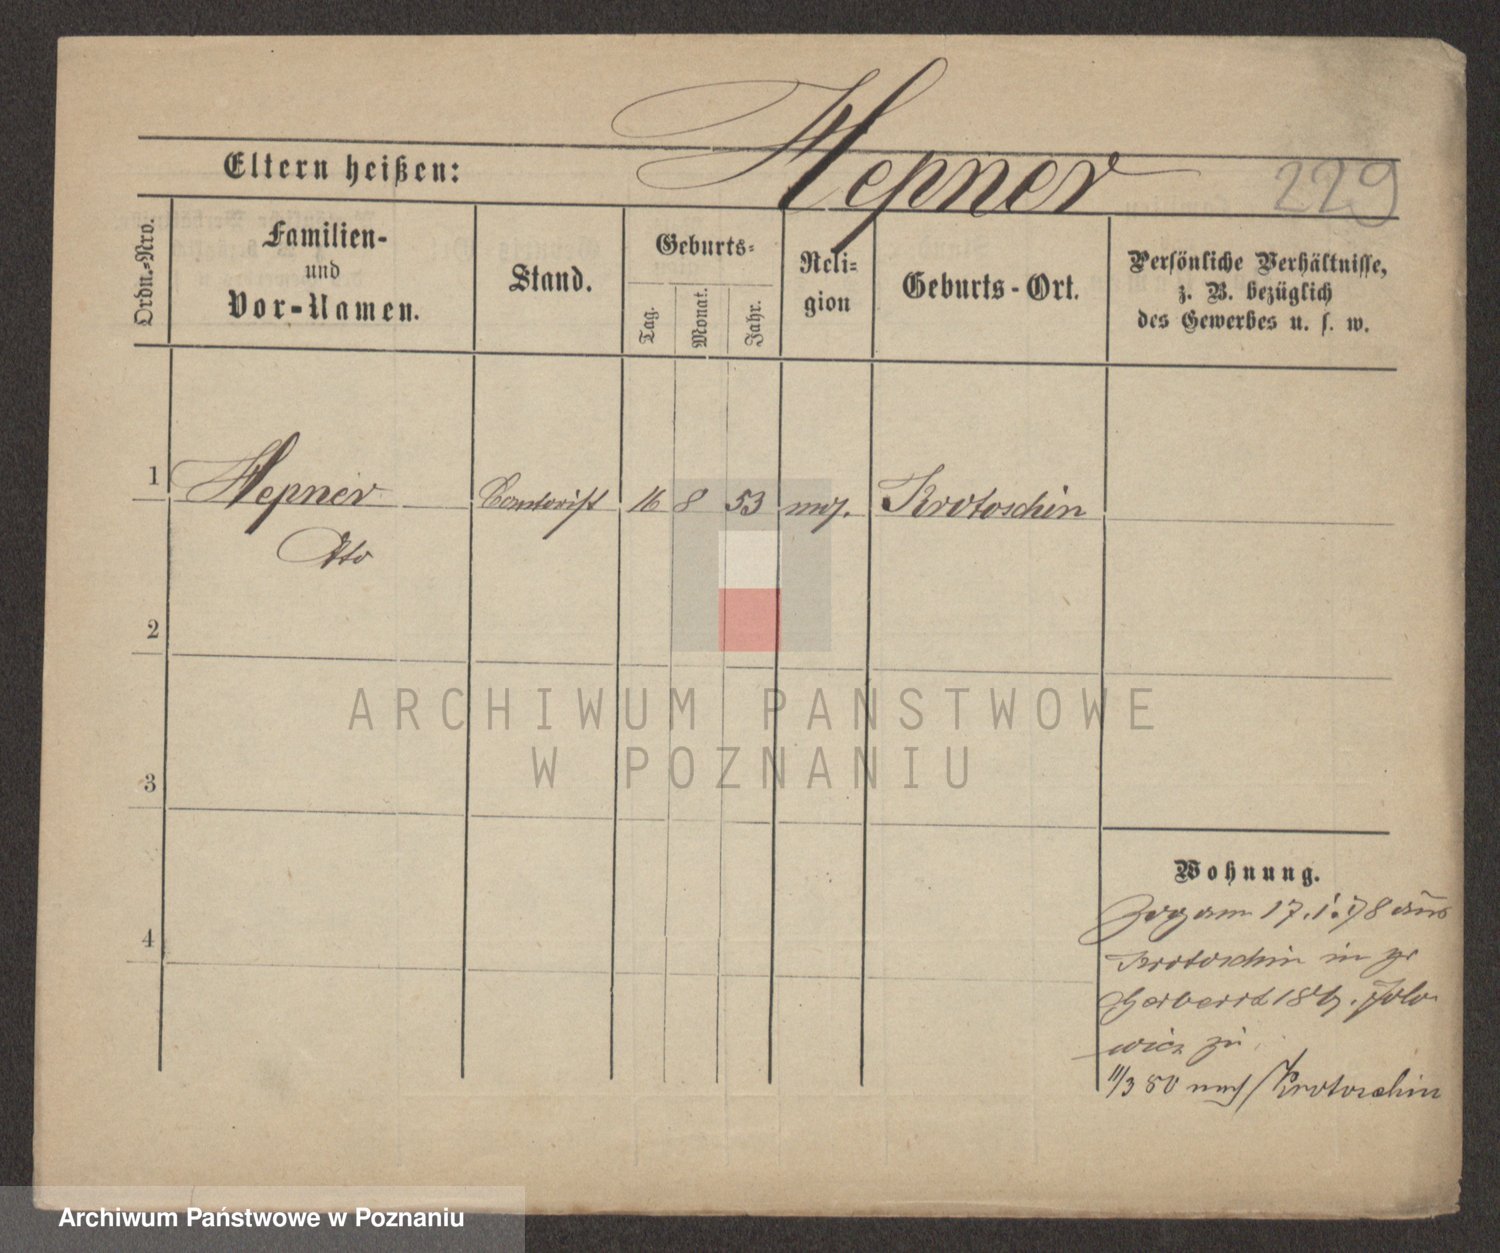 Hepner
229
Eltern heißen:
Ordn.-Nro.
Familien-
und
Vor-Namen.
Stand.
Geburts-
Tag.
Monat.
Jahr.
Reli-
gion
Geburts-Ort.
Persönliche Verhältnisse,
z. B. bezüglich
des Gewerbes u. s. w.
1
Hepner
Otto
Comtorist
16
8
53
mos.
Krotoschin
2
3
4
Wohnung.
Zog am 17.1.78 aus
Krotoschin in gr
Gerberst 18 b. Jolo
wicz zu
11/3 80 nach Krotoschin
ARCHIWUM PAŃSTWOWE
W POZNANIU
Archiwum Państwowe w Poznaniu